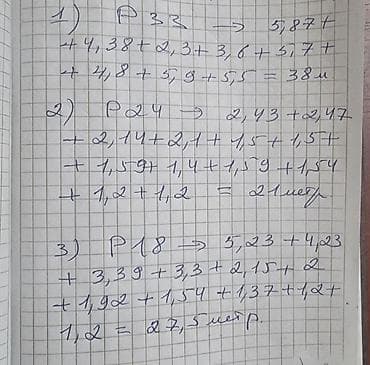 1) Р 33 → 5,87+
+4,38+2,3+3,6+5,7+
+4,8+5,9+5,5=38м
2) Р24 → 2,43+2,47
+2,14+2,1+1,5+1,5+
+1,59+1,4+1,59+1,54
+1,2+1,2 = 21метр
3) Р18 → 5,23+4,23
+3,39+3,3+2,15+2
+1,92+1,54+1,37+1,2+
1,2=27,5метр.